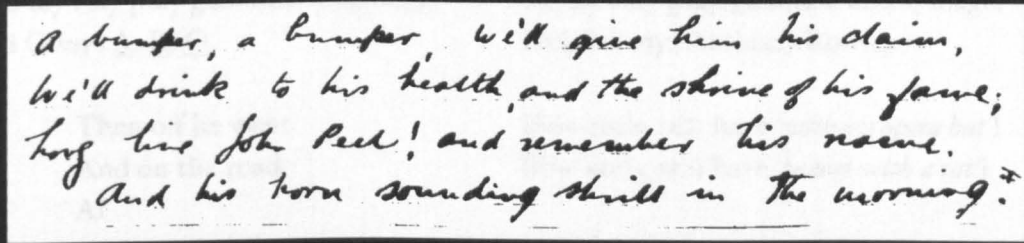 A bumper, a bumper, we'll give him his claim,
We'll drink to his health, and the shrine of his fame;
Long live John Peel! and remember his name.
And his horn sounding shrill in the morning."